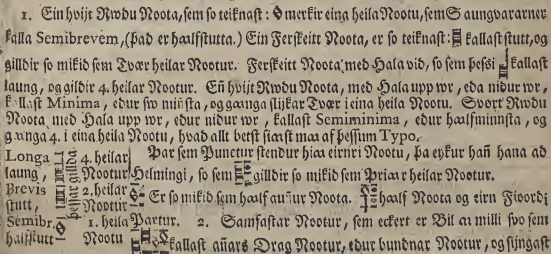 1. Ein hvijt Rwdu Noota, sem so teiknast: merker eina heila Nootu, sem Saungvararner
kalla Semibrevem, (þad er haalfstutta.) Ein Ferkeitt Noota, er so teiknast: kallast stutt, og
gilldir so mikid sem Tvær heilar Nootur. Ferkeitt Noota med Hala vid, so sem þessi kallast
laung, og gilldir 4. heilar Nootur. Eñ hvijt Rwdu Noota, med Hala upp wr, eda nidur wr,
kallast Minima, edur sw miñsta, og gaanga slijkar Tvær i eina heila Nootu. Svort Rwdu
Noota med Hala upp wr, edur nidur wr, kallast Semiminima, edur haalfmiñsta, og
gaanga 4. i eina heila Nootu, hvad allt betst siæst maa af þessum Typo.
Longa 4. heilar
laung, Nootur
Brevis 2. heilar
stutt, Nootur
Semibr. 1. heila
haalfstutt Nootu
þessar gillda
Þar sem Punctur stendur hiaa eirnri Nootu, þa eykur hañ hana ad
Helmingi, so sem gilldir so mikid sem Þriaar heilar Nootur.
Er so mikid sem haalf añur Noota. haalf Noota og eirn Fioordi
Partur. 2. Samfastar Nootur, sem eckert er Bil aa milli svo sem
kallast añars Drag Nootur, edur bundnar Nootur, og siingast